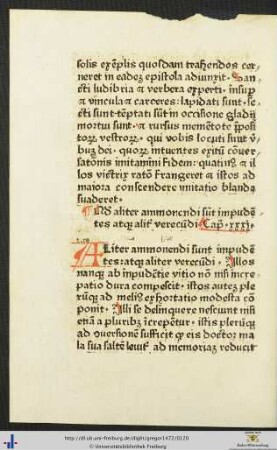 solis exēplis quosdam trahendos cer-
neret in eadeʒ epistola adiunxit. San
cti ludibria ⁊ verbera experti. insup
⁊ vincula ⁊ carceres: lapidati sunt. se
cti sunt. tēptati sūt in occisione gladij
mortui sunt. ⁊ rursus mementote p̄posi
torꝝ vestrorꝝ. qui vobis locuti sunt v̄
bum dei. quorꝝ intuentes exitū cōuer
satonis imitamini fidem: quatinꝰ ⁊ il
los victrix ratō frangeret ⁊ istos ad
maiora conscendere imitatio blanda
suaderet.
aliter ammonendi sūt impudē
tes atqꝫ alit verecūdi. Cap. xxxi.
ALiter ammonendi sunt impudē
tes: atqꝫ aliter verecūdi. Illos
nanqꝫ ab impudētie vitio nō nisi incre
patio dura compescit. istos autez ple
rūqꝫ ad meliꝰ exhortatio modesta cō
ponit. Illi se delinquere nesciunt nisi
etiā a pluribꝫ icrepētur. istis plerūqꝫ
ad ↄuersionem sufficit qꝫ eis doctor ma
la sua saltē leuit ad memoriaꝫ reducit
http://dl.ub.uni-freiburg.de/diglit/gregor1472/0120
© Universitätsbibliothek Freiburg